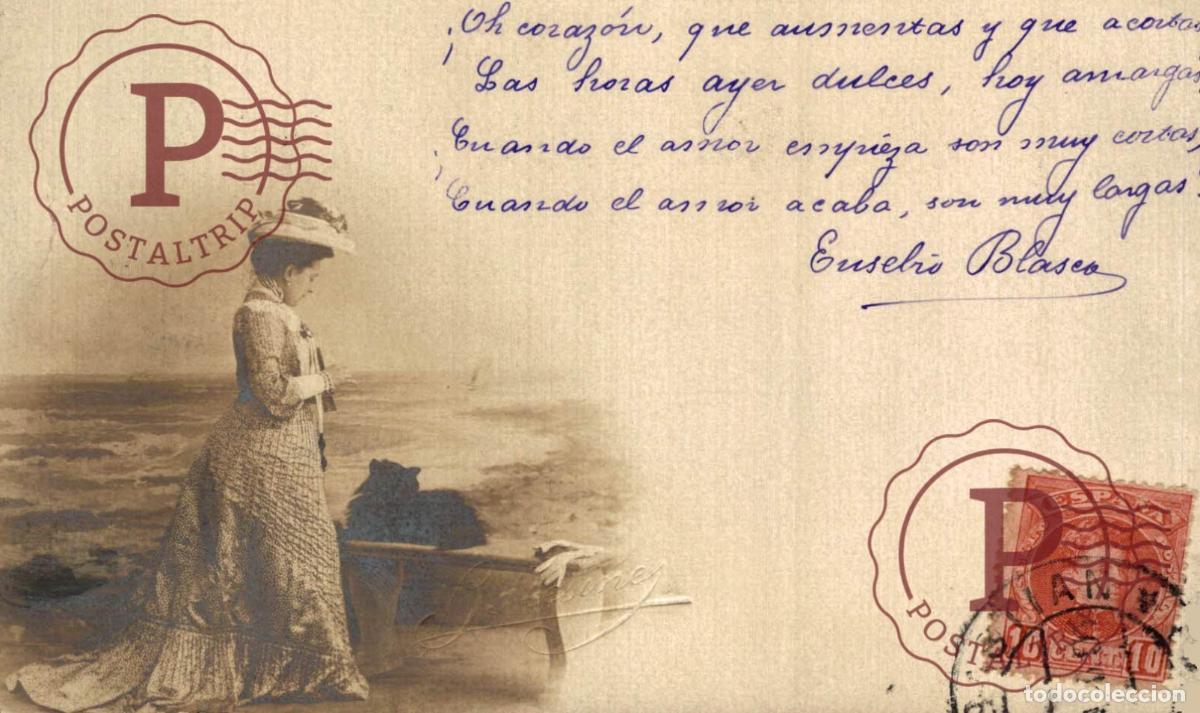 ¡Oh corazón, que aumentas y que acortas
Las horas ayer dulces, hoy amargas,
Cuando el amor empieza son muy cortas,
¡Cuando el amor acaba, son muy largas
Eusebio Blasco
P
POSTALTRIP
ESPAÑA
P
POSTA
10 CENT. 10
todocoleccion